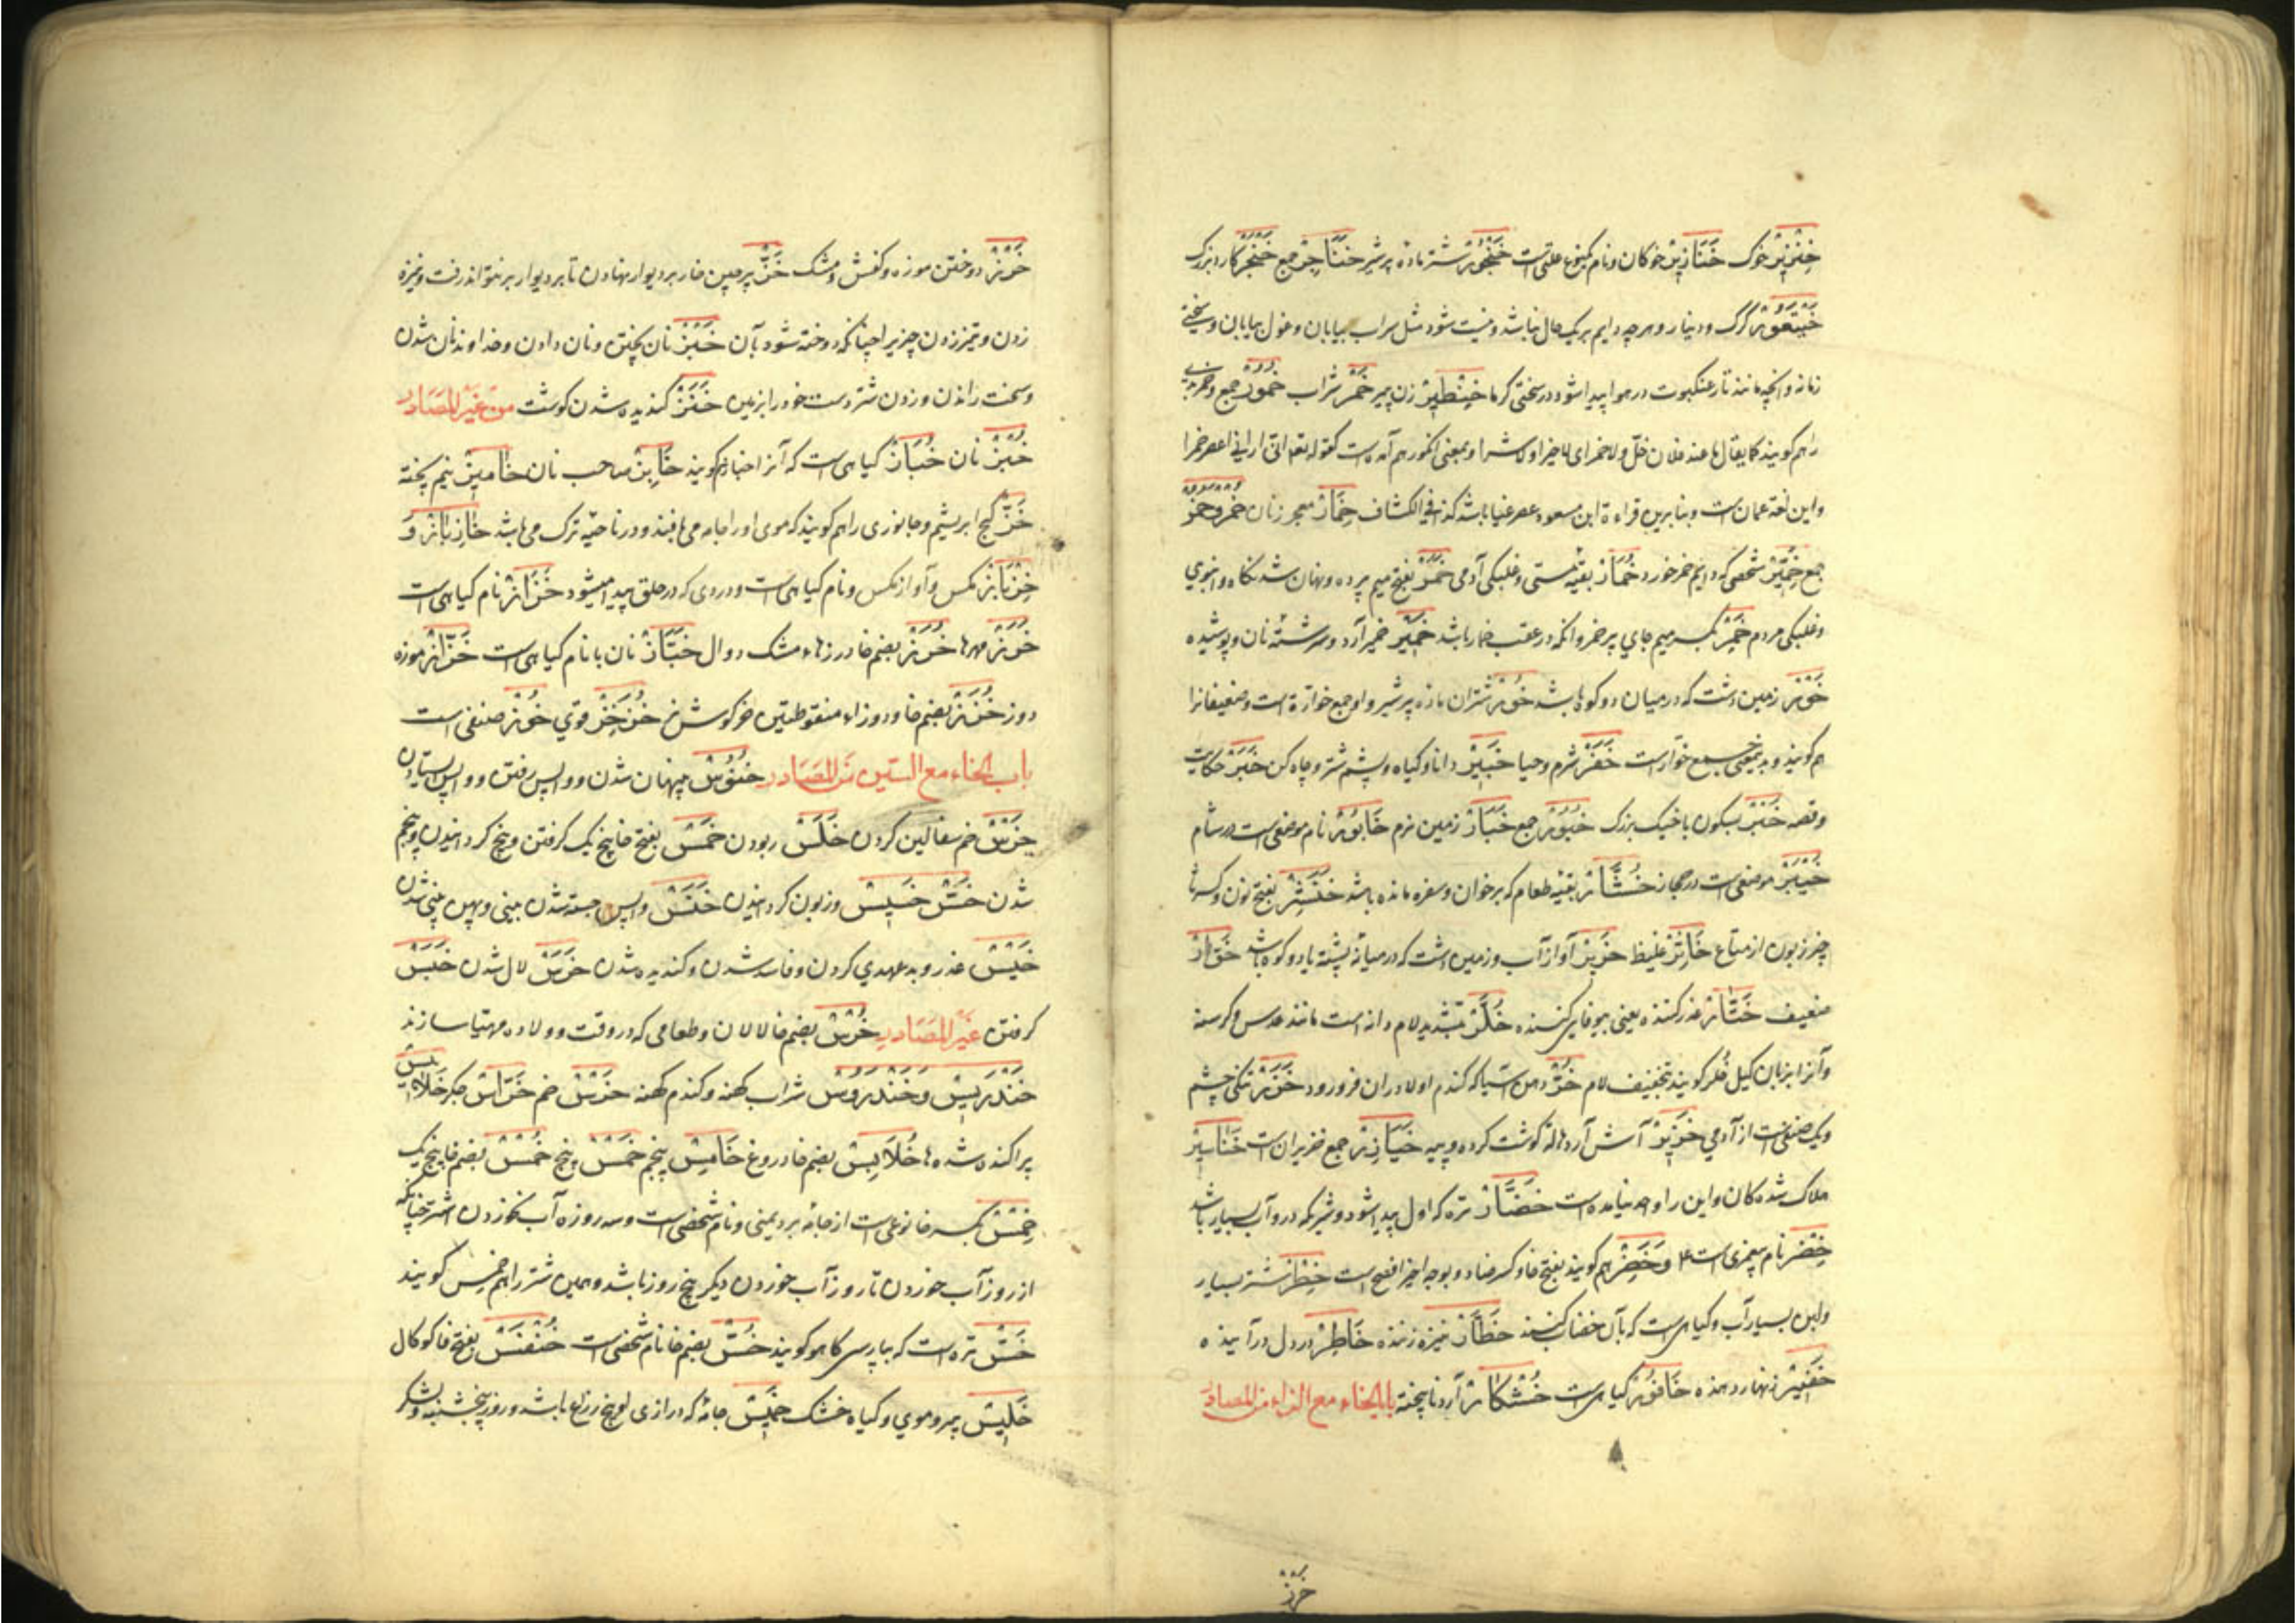 خنزير خوک خنازير خوکان و نام علتی است خنجور شتر ماده پر شیر خناجر جمع خنجر کارد بزرک
خيتعور کرک و دنیا و هرچه دایم بر یک حال نباشد و نیست شود مثل سراب بیابان و غول بیابان و سختی
زمانه و انچه مانند تار عنکبوت در هوا پیدا شود در سختی کرما خنطير زن پیر خمر شراب خمور جمع
را هم کویند کما یقال ما عند فلان خل ولا خمر ای لا خیر ولا شر و بمعنی انکور هم آمده است کقوله تعالی انی ارانی اعصر خمرا
و این لغة عمان است و بنا برین قراءة ابن مسعود اعصر عنبا باشد کذا فی الکشاف خمار معجر زنان خمر
جمع خمير شخصی که دایم خمر خورد خمار بقیه مستی و غلبکی آدمی خمر بفتح میم پرده و نهان شدنکاه و انبوهی
و غلبکی مردم خمر بکسر میم جای پر خمر و آنکه در عقب خمار باشد خمير خمیر آرد و سرشتهٔ نان و پوشیده
خور زمین پست که در میان دو کوه باشد خور شتران ماده پر شیر و او جمع خوارة است و ضعیفانرا
هم کویند و به معنی جمع خوار است خفر شرم و حیا خبير دانا و کیاه و پشم شتر و چاه کن خبر حکایت
و قصه خبر بسکون با خیک بزرک خبور جمع خبار زمین نرم خابور نام موضعی است در شام
خيبر موضعی است در حجاز خشار بقیه طعام که بر خوان و سفره مانده باشد خنثر بفتح نون و کسر ثا
چیز زبون از متاع خاثر غلیظ خرير آواز آب و زمین پست که در میانه پشته یا دو کوه باشد خوار
ضعیف ختار غدر کننده یعنی بیوفایی کننده خلر بتشدید لام دانه است مانند عدس و کرسنه
و آنرا بزبان کیل خلر کویند بتخفیف لام خر دهن آسیا که کندم اول در آن فرو رود خزر تنکی چشم
و یک صنفی است از آدمی خزير آش آرد هاله کوشت کرده و پیه خيازير جمع خنزیران است خناسير
هلاک شده کان و این را واحد نیامده است خضار تره که اول پیدا شود و شیر که درو آب بسیار باشد
خضر نام پیغمبری است و خضر هم کویند بفتح خا و کسر ضاد و بوجه اخیر افصح است خطر شتر بسیار
و لبن بسیار آب و کیاهی است که بآن خضاب کنند خطار نیزه زننده خاطر در دل درآینده
خفير زنهار دهنده خافور کیاهی است خشکار آرد ناپخته باب الخاء مع الزاء من المصادر
خرز
خرز دوختن موزه و کفش و مشک خز پرچین خار بر دیوار نهادن تا بر دیوار بر نتواند رفت و نیزه
زدن و تیر زدن چیزیرا چنانکه دوخته شود بآن خبز نان پختن و نان دادن و خداوند نان شدن
و سخت راندن و زدن شتر دست خود را بزمین خنز کندیده شدن کوشت من غير المصادر
خبز نان خباز کیاهی است که آنرا خبازی کویند خابز صاحب نان خاميز نیم پخته
خز کج ابریشم و جانوری را هم کویند که موی او را جامه می بافند و در ناحیه ترک می باشد خازباز و
خزباز مکس و آواز مکس و نام کیاهی است و دردی که در حلق پیدا میشود خزاز نام کیاهی است
خرز مهرها خرز بضم خا درزهاء مشک و دوال خباز نان با نام کیاهی است خراز موزه
دوز خزز بضم خا و دو زاء منقوطتین خرکوش نر خزخز قوی خوز صنفی است
باب الخاء مع السين من المصادر خنوس پنهان شدن و واپس رفتن و واپس ایستادن
خرس خم سفالین کردن خلس ربودن خمس بفتح خا پنج یک کرفتن و پنج کردانیدن و پنجم
شدن خس خسيس و زبون کردانیدن خنس واپس جسته شدن بینی و پهن بینی شدن
خيس غدر و بد عهدی کردن و فاسد شدن و کندیده شدن خرس لال شدن خبس
کرفتن غير المصادر خرس بضم خا لالان و طعامی که در وقت ولاده مهیا سازند
خندريس و خندروس شراب کهنه و کندم کهنه خرس خم خراس خلابيس
پراکنده شده ها خلابيس بضم خا دروغ خامس پنجم خمس پنج خمس بضم خا پنج یک
خمس بکسر خا نوعی است از جامهٔ برد یمنی و نام شخصی است و سه روزه آب نخوردن اشتر چنانکه
از روز آب خوردن تا روز آب خوردن دیکر پنج روز باشد و همین شتر را هم خمس کویند
خس تره است که بپارسی کاهو کویند خس بضم خا نام شخصی است خنفس بفتح فا کوکال
خليس پیر و موی و کیاه خشک خميس جامهٔ که درازی او پنج زراع باشد و روز پنجشنبه و لشکر